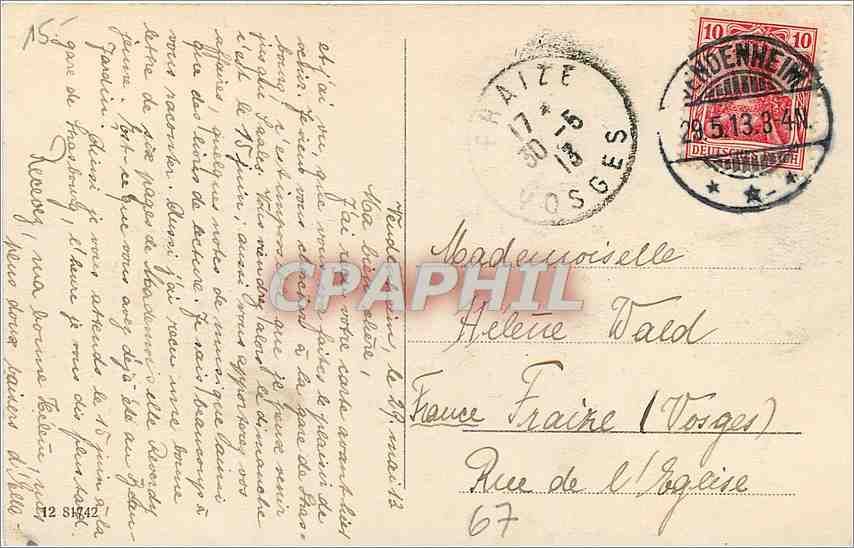 Vendenheim, le 29. mai 13
Ma bien chère,
J'ai reçu votre carte avant-hier
et j'ai vu, que vous me faites le plaisir de
venir. Je viens vous chercher à la gare de Stras-
bourg, c'est impossible que je peux venir
jusqu'au Saales. Vous viendrez alors le dimanche
c'est le 15 juin; aussi vous apporterez vos
affaires, quelques notes de musique ainsi
que des livres de lecture. Je sais beaucoup à
vous raconter. Aussi j'ai reçu une bonne
lettre de six pages de Mademoiselle
jeune. Est-ce que vous avez déjà été au
Jardin. Ainsi je vous attends le 15 juin à la
gare de Strasbourg, l'heure je vous dis plus tard.
Recevez, ma bonne Hélène, mes
plus doux baisers d'
15
12 S1742
FRAIZE
17 * 5
30 13
VOSGES
VENDENHEIM
29.5.13.3-4N.
10 10
DEUTSCHES REICH
CPAPHIL
Mademoiselle
Hélène Wald
France Fraize (Vosges)
Rue de l'Eglise
67